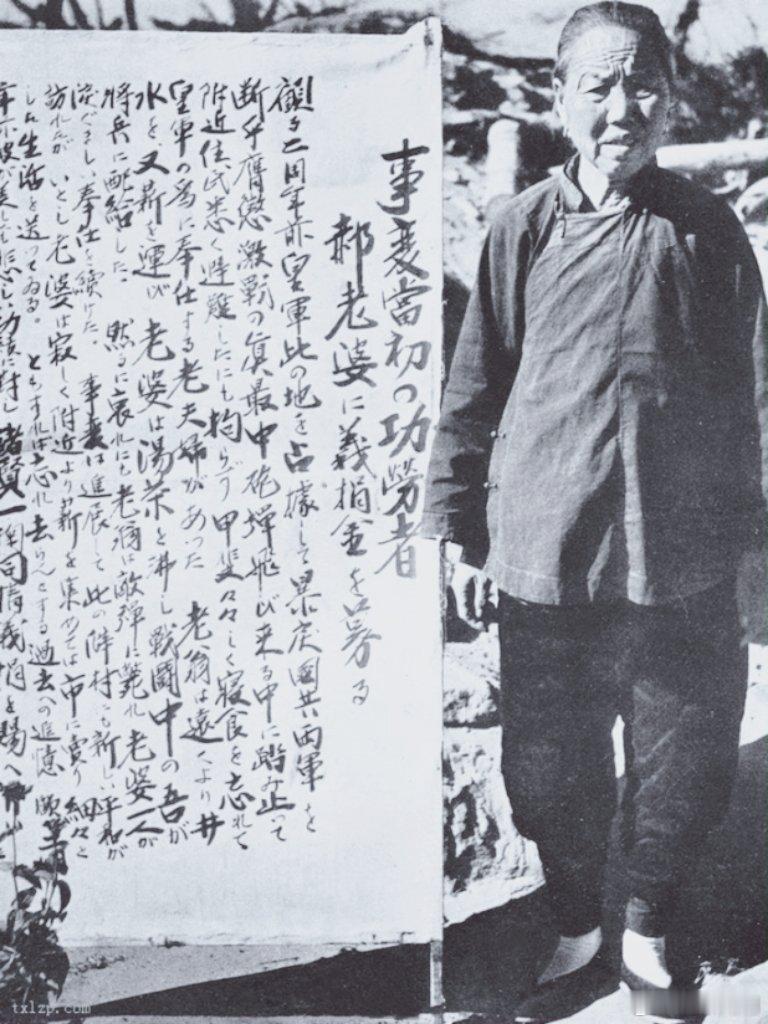 事変當初の功勞者
郝老婆に義捐金を募る
顧る二周年前皇軍此の地を占據して暴戻國共両軍を
断乎膺懲激戰の眞最中砲弾飛び来る中に踏み止って
附近住民悉く避難したにも拘らず甲斐々々しく寝食を忘れて
皇軍の為に奉仕する老夫婦があった 老翁は遠くより井
水を、又薪を運び 老婆は湯茶を沸し戰闘中の吾が
將兵に配給した。 然るに哀れにも老翁は敵弾に斃れ老婆一人が
淚ぐましい奉仕を續けた。 事変は進展して此の僻村にも新しい平和が
訪れたが いとし老婆は寂しく附近より薪を集めては市に賣り細々と
した生活を送ってゐる。 ともすれば忘れ去らんとする過去の追憶
悲しい功績に対し諸賢一同同情義捐を賜へ
txlzp.com